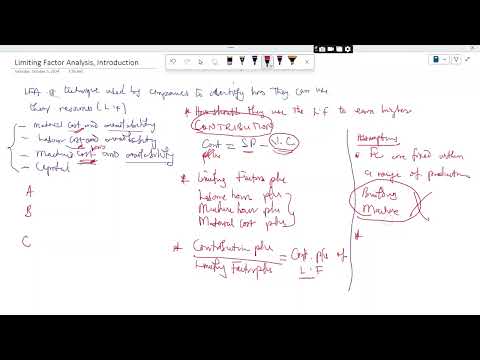 Limiting Factor Analysis, Introduction
Saturday, October 5, 2024
LFA @ technique used by companies to identify how they can use
their resources (L.F)
- Material cost and availability
- Labour cost and availability
- Machine cost and availability
- Capital
A
B
C
* How should they use the L.F to earn higher
CONTRIBUTION
Cont = SP - V.C
p/u
* Limiting Factors p/u
Labour hours p/u
Machine hours p/u
Material cost p/u
* Contribution p/u = Cont. p/u of
Limiting Factor p/u L.F
Assumptions
* FC are fixed within
a range of production
Building
Machine
*